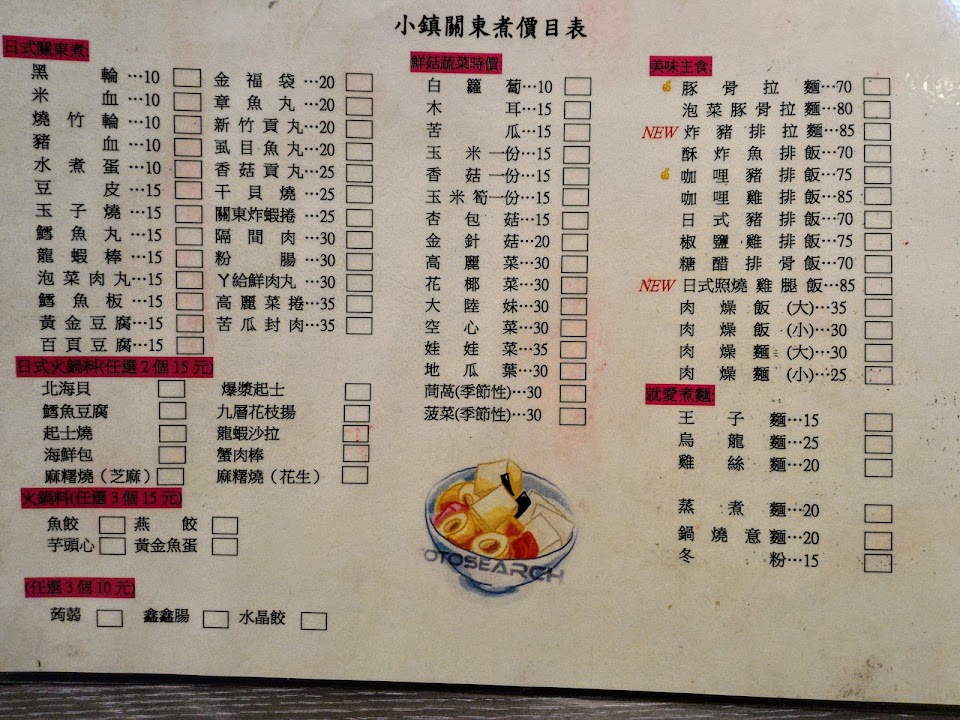 小鎮關東煮價目表
日式關東煮:
黑輪…10
米血…10
燒竹輪…10
豬血…10
水煮蛋…10
豆皮…15
玉子燒…15
鱈魚丸…15
龍蝦棒…15
泡菜肉丸…15
鱈魚板…15
黃金豆腐…15
百頁豆腐…15
金福袋…20
章魚丸…20
新竹貢丸…20
虱目魚丸…20
香菇貢丸…25
干貝燒…25
關東炸蝦捲…25
隔間肉…30
粉腸…30
丫給鮮肉丸…30
高麗菜捲…35
苦瓜封肉…35
日式火鍋料(任選2個15元)
北海貝 爆漿起士
鱈魚豆腐 九層花枝揚
起士燒 龍蝦沙拉
海鮮包 蟹肉棒
麻糬燒（芝麻） 麻糬燒（花生）
火鍋料(任選3個15元)
魚餃 燕餃
芋頭心 黃金魚蛋
(任選3個10元)
蒟蒻 鑫鑫腸 水晶餃
鮮菇蔬菜時價
白籮蔔…10
木耳…15
苦瓜…15
玉米一份…15
香菇一份…15
玉米筍一份…15
杏包菇…15
金針菇…20
高麗菜…30
花椰菜…30
大陸妹…30
空心菜…30
娃娃菜…35
地瓜葉…30
茼蒿(季節性)…30
菠菜(季節性)…30
OTOSEARCH
美味主食:
豚骨拉麵…70
泡菜豚骨拉麵…80
NEW 炸豬排拉麵…85
酥炸魚排飯…70
咖哩豬排飯…75
咖哩雞排飯…85
日式豬排飯…70
椒鹽雞排飯…75
糖醋排骨飯…70
NEW 日式照燒雞腿飯…85
肉燥飯(大)…35
肉燥飯(小)…30
肉燥麵(大)…30
肉燥麵(小)…25
就愛煮麵:
王子麵…15
烏龍麵…25
雞絲麵…20
蒸煮麵…20
鍋燒意麵…20
冬粉…15